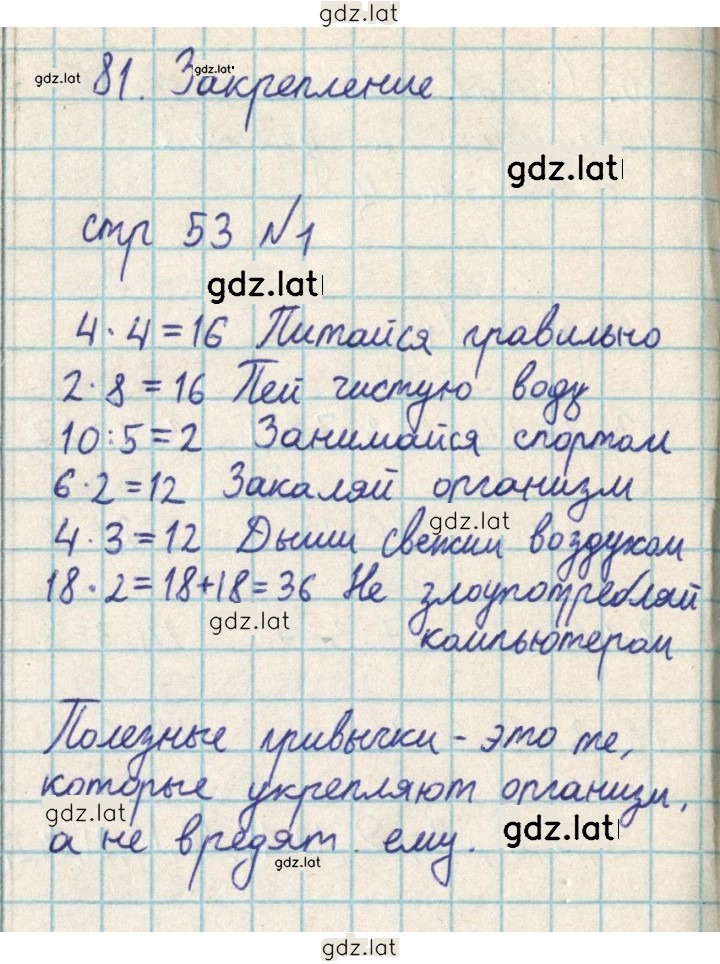 gdz.lat
gdz.lat 81. Закрепление.
gdz.lat
gdz.lat
стр 53 №1
gdz.lat
4·4=16 Питайся правильно
2·8=16 Пей чистую воду
10:5=2 Занимайся спортом
6·2=12 Закаляй организм
gdz.lat
4·3=12 Дыши свежим воздухом
18·2=18+18=36 Не злоупотребляй
gdz.lat
компьютером
Полезные привычки - это те,
которые укрепляют организм,
gdz.lat
а не вредят ему. gdz.lat
gdz.lat
gdz.lat